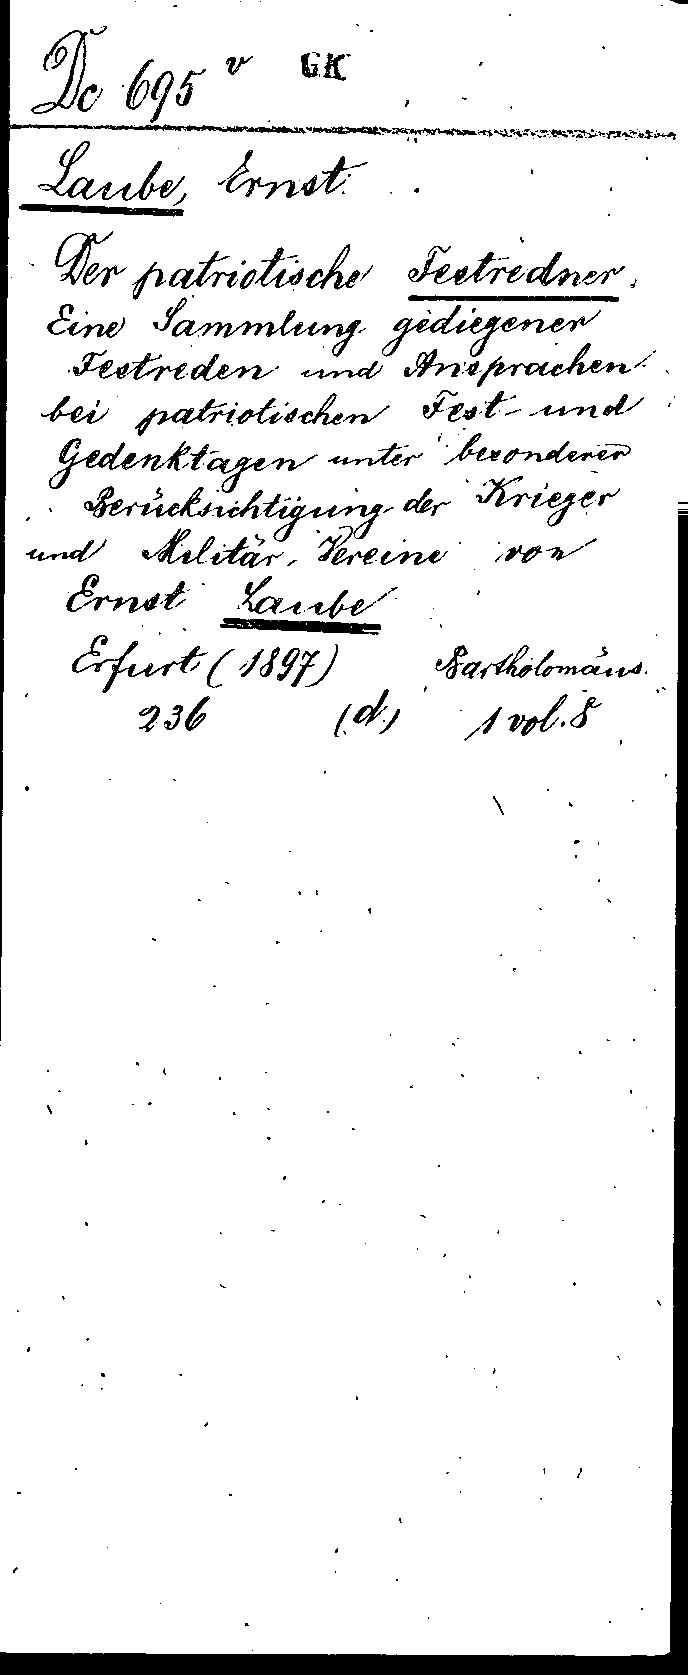 Dc 695 v GK
Laube, Ernst.
Der patriotische Festredner.
Eine Sammlung gediegener
Festreden und Ansprachen
bei patriotischen Fest- und
Gedenktagen unter besonderer
Berücksichtigung der Krieger
und Militär-Vereine von
Ernst Laube
Erfurt (1897) Bartholomäus.
236 (d.) 1 vol. 8